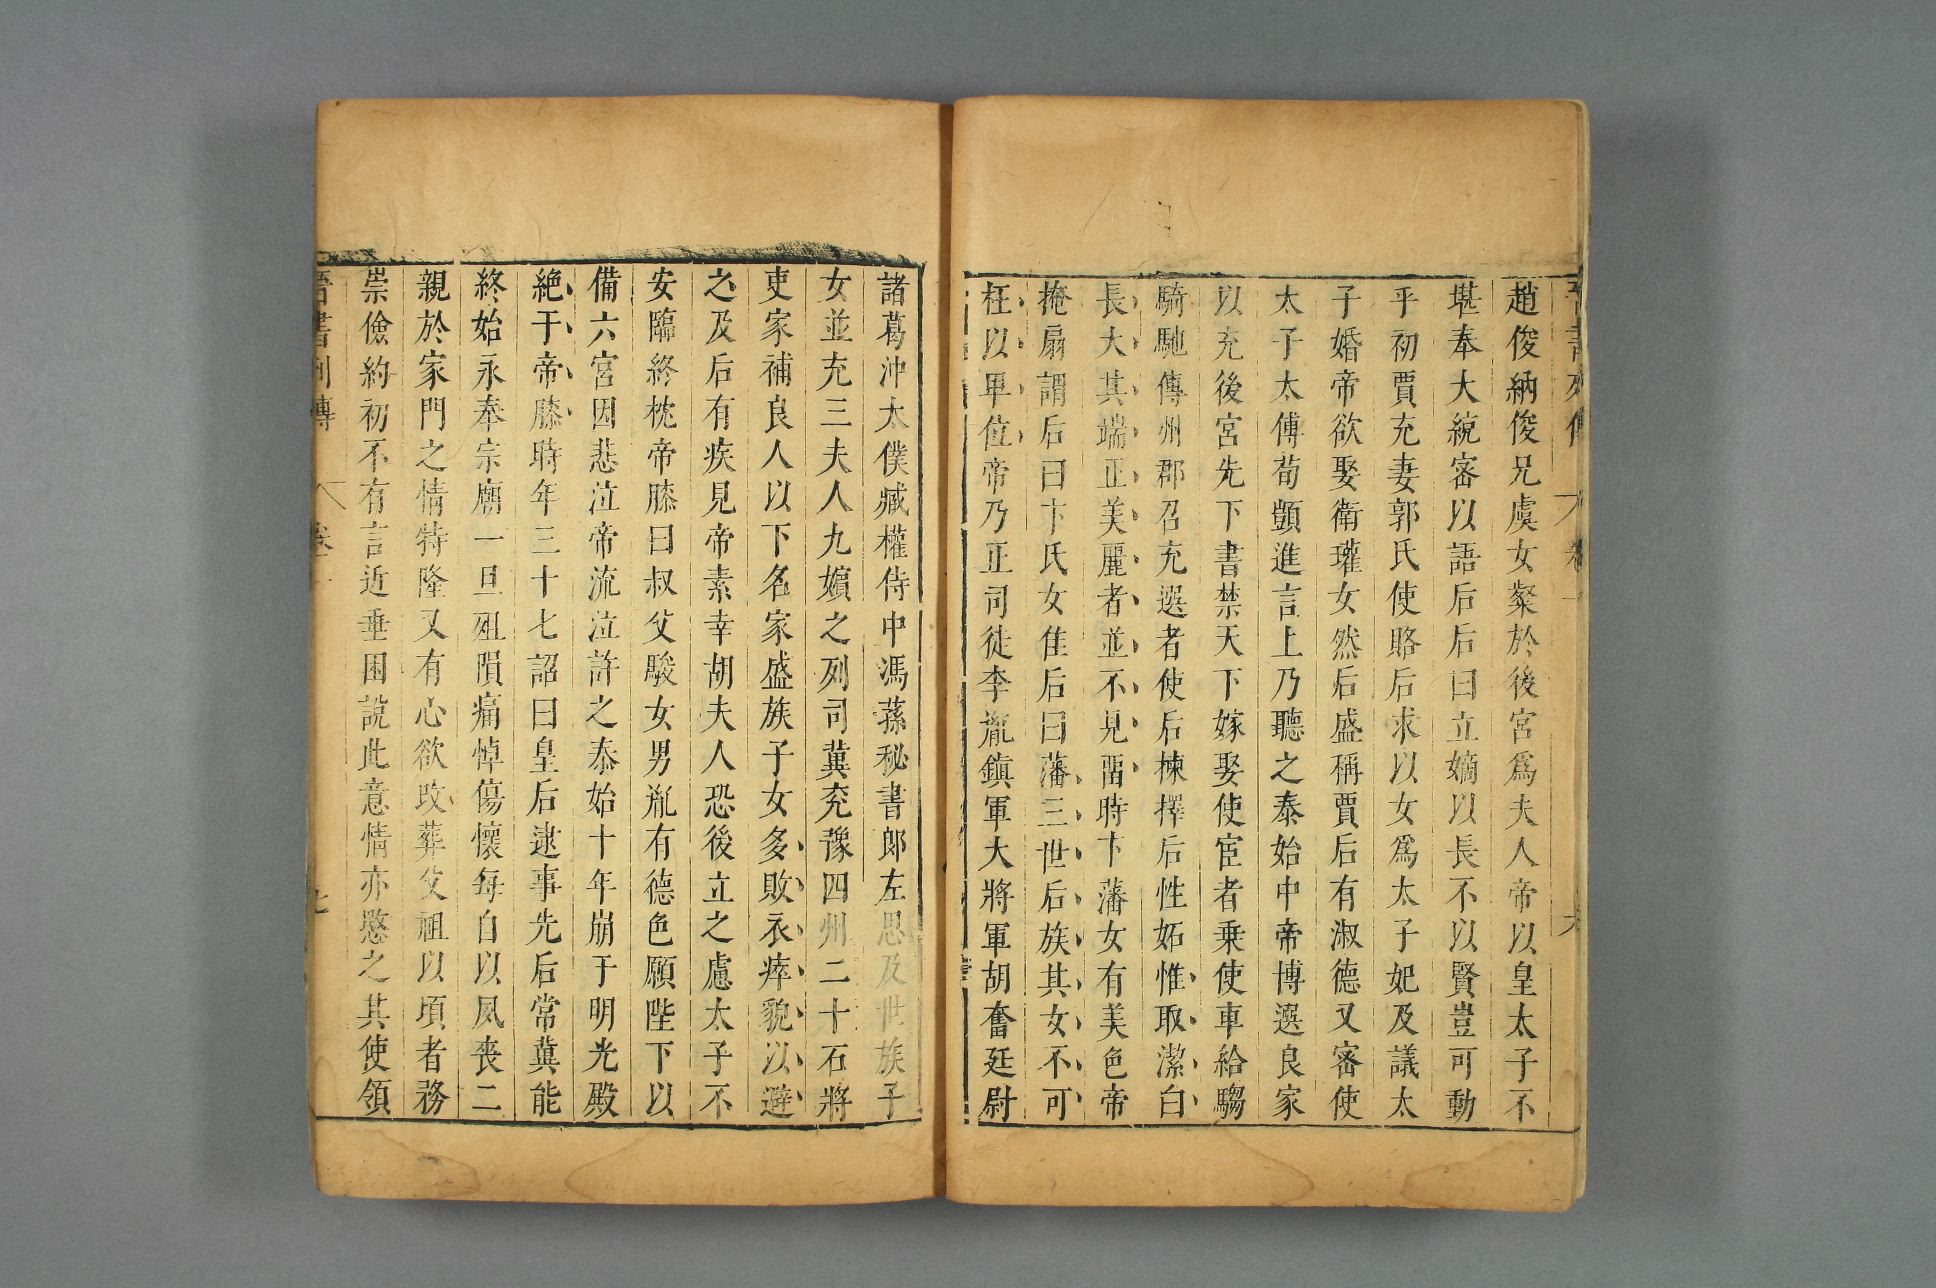 趙俊納俊兄虞女粲於後宮爲夫人帝以皇太子不
堪奉大統密以語后后曰立嫡以長不以賢豈可動
乎初賈充妻郭氏使賂后求以女爲太子妃及議太
子婚帝欲娶衛瓘女然后盛稱賈后有淑德又密使
太子太傅荀顗進言上乃聽之泰始中帝博選良家
以充後宮先下書禁天下嫁娶使宦者乗使車給騶
騎馳傳州郡召充選者使后揀擇后性妬惟取潔白
長大其端正美麗者並不見畱時卞藩女有美色帝
掩扇謂后曰卞氏女佳后曰藩三世后族其女不可
枉以卑位帝乃止司徒李胤鎮軍大將軍胡奮廷尉
諸葛沖太僕臧權侍中馮蓀秘書郎左思及世族子
女並充三夫人九嬪之列司冀兖豫四州二千石將
吏家補良人以下名家盛族子女多敗衣瘁貌以避
之及后有疾見帝素幸胡夫人恐後立之慮太子不
安臨終枕帝膝曰叔父駿女男胤有德色願陛下以
備六宮因悲泣帝流泣許之泰始十年崩于明光殿
絶于帝膝時年三十七詔曰皇后逮事先后常冀能
終始永奉宗廟一旦殂隕痛悼傷懷每自以夙喪二
親於家門之情特隆又有心欲改葬父祖以頃者務
崇儉約初不有言近垂困説此意情亦愍之其使領
晉書列傳 卷一 七